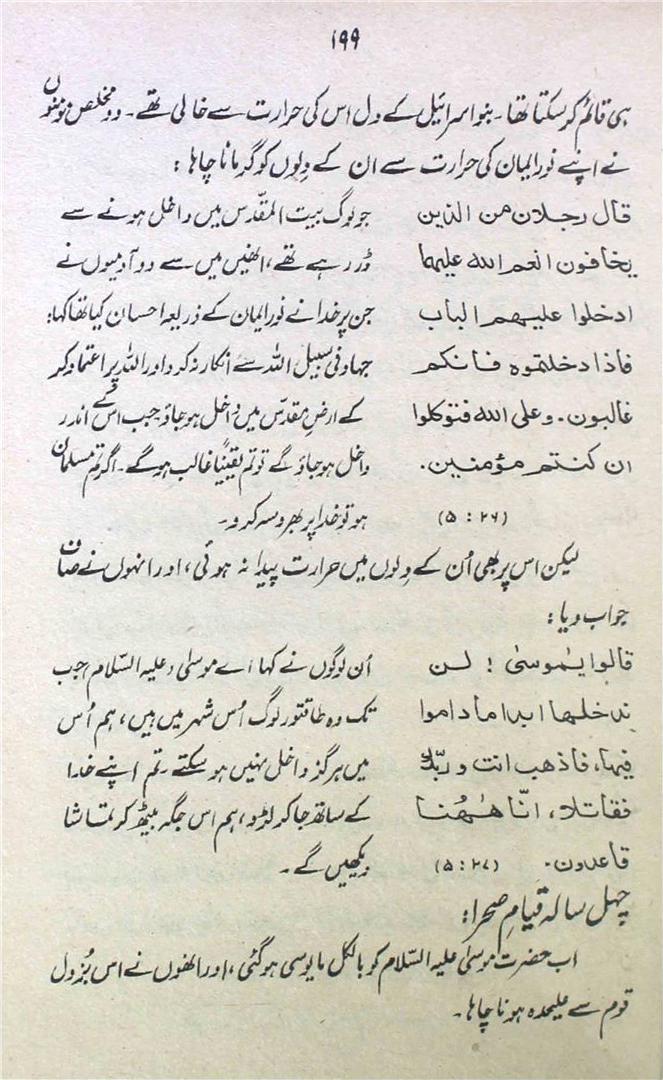 ۱۹۹
ہی قائم کر سکتا تھا۔ بنو اسرائیل کے دل اس کی حرارت سے خالی تھے۔ دو مخلص مومنوں
نے اپنے نور ایمان کی حرارت سے ان کے دلوں کو گرمانا چاہا :
قال رجلان من الذین
یخافون انعم اللہ علیھما
ادخلوا علیھم الباب
فاذا دخلتموہ فانکم
غالبون۔ وعلی اللہ فتوکلوا
ان کنتم مؤمنین۔
(۵ : ۲۶)
جو لوگ بیت المقدّس میں داخل ہونے سے
ڈر رہے تھے، انھیں میں سے دو آدمیوں نے
جن پر خدا نے نور ایمان کے ذریعہ احسان کیا تھا کہا:
جہاد فی سبیل اللہ سے انکار نہ کرو اور اللہ پر اعتماد کر
کے ارضِ مقدّس میں داخل ہو جاؤ جب اس کے اندر
داخل ہو جاؤ گے تو تم یقیناً غالب ہو گے۔ اگر تم مسلمان
ہو تو خدا پر بھروسہ کرو۔
لیکن اس پر بھی اُن کے دلوں میں حرارت پیدا نہ ہوئی، اور انہوں نے صاف
جواب دیا :
قالوا یٰموسیٰ ! لن
ندخلھا ابدا ما داموا
فیھا، فاذھب انت و ربّک
فقاتلا، انّا ھٰھُنا
قاعدون۔ (۵ : ۲۷)
اُن لوگوں نے کہا اے موسیٰ (علیہ السّلام) جب
تک وہ طاقتور لوگ اُس شہر میں ہیں، ہم اُس
میں ہرگز داخل نہیں ہو سکتے۔ تم اپنے خدا
کے ساتھ جا کر لڑو، ہم اس جگہ بیٹھ کر تماشا
دیکھیں گے۔
چہل سالہ قیامِ صحرا:
اب حضرت موسیٰ علیہ السّلام کو بالکل مایوسی ہو گئی، اور انھوں نے اس بُزدل
قوم سے علیحدہ ہونا چاہا۔